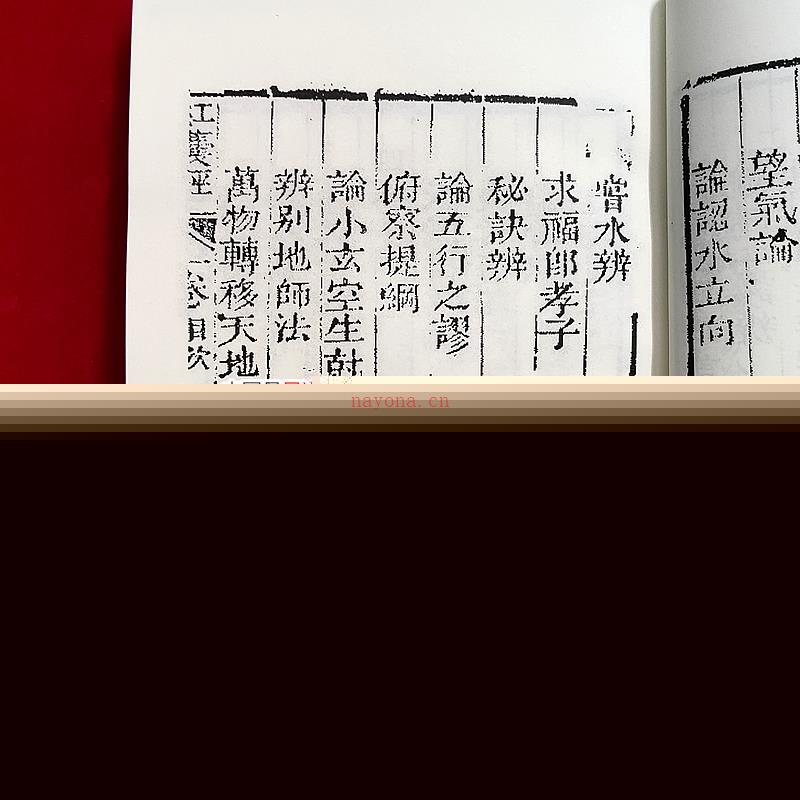 望氣論
論認水立向
水辨
求福郎孝子
秘訣辨
論五行之謬
俯察提綱
論小玄空生尅
辨別地師法
萬物轉移天地
紅囊經 卷目次
nayona.cn